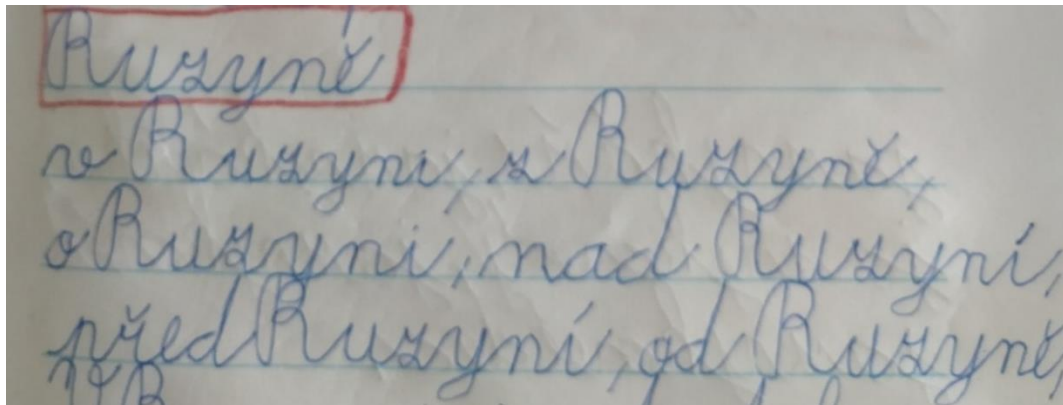 Ruzyně
v Ruzyni, z Ruzyně,
o Ruzyni, nad Ruzyní,
před Ruzyní, od Ruzyně,